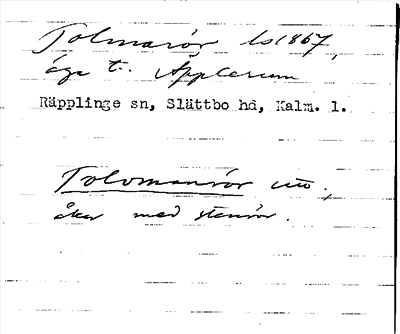 Tolmarör ls1867,
äga t. Äpplerum
Räpplinge sn, Slättbo hd, Kalm. l.
Tolomansrör
åker med stenrör.